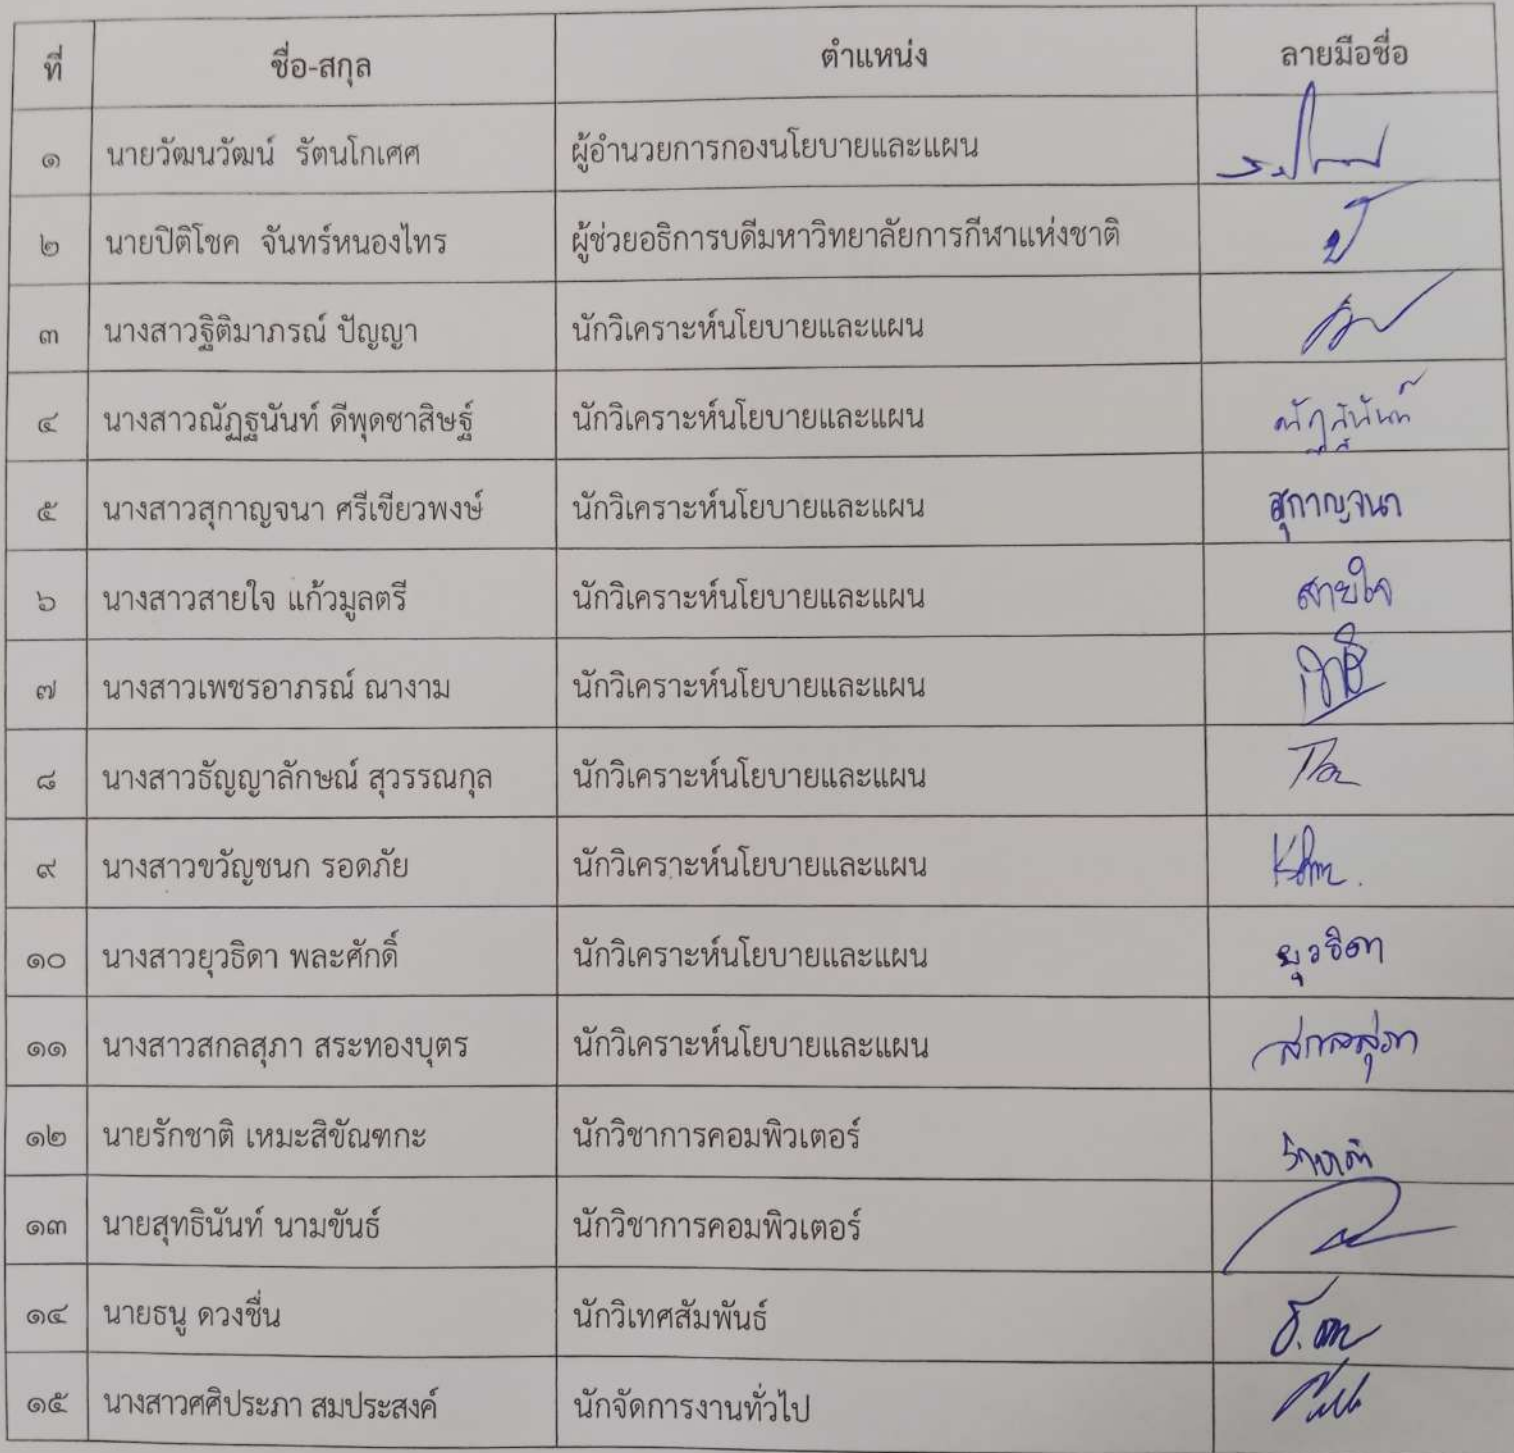 ที่ ชื่อ-สกุล ตำแหน่ง ลายมือชื่อ
๑ นายวัฒนวัฒน์ รัตนโกเศศ ผู้อำนวยการกองนโยบายและแผน
๒ นายปิติโชค จันทร์หนองไทร ผู้ช่วยอธิการบดีมหาวิทยาลัยการกีฬาแห่งชาติ
๓ นางสาวฐิติมาภรณ์ ปัญญา นักวิเคราะห์นโยบายและแผน
๔ นางสาวณัฏฐนันท์ ดีพุดซาสิษฐ์ นักวิเคราะห์นโยบายและแผน ณัฏฐนันท์
๕ นางสาวสุกาญจนา ศรีเขียวพงษ์ นักวิเคราะห์นโยบายและแผน สุกาญจนา
๖ นางสาวสายใจ แก้วมูลตรี นักวิเคราะห์นโยบายและแผน สายใจ
๗ นางสาวเพชรอาภรณ์ ณางาม นักวิเคราะห์นโยบายและแผน
๘ นางสาวธัญญาลักษณ์ สุวรรณกุล นักวิเคราะห์นโยบายและแผน
๙ นางสาวขวัญชนก รอดภัย นักวิเคราะห์นโยบายและแผน
๑๐ นางสาวยุวธิดา พละศักดิ์ นักวิเคราะห์นโยบายและแผน ยุวธิดา
๑๑ นางสาวสกลสุภา สระทองบุตร นักวิเคราะห์นโยบายและแผน สกลสุภา
๑๒ นายรักชาติ เหมะสิขัณฑกะ นักวิชาการคอมพิวเตอร์ รักชาติ
๑๓ นายสุทธินันท์ นามขันธ์ นักวิชาการคอมพิวเตอร์
๑๔ นายธนู ดวงชื่น นักวิเทศสัมพันธ์
๑๕ นางสาวศศิประภา สมประสงค์ นักจัดการงานทั่วไป